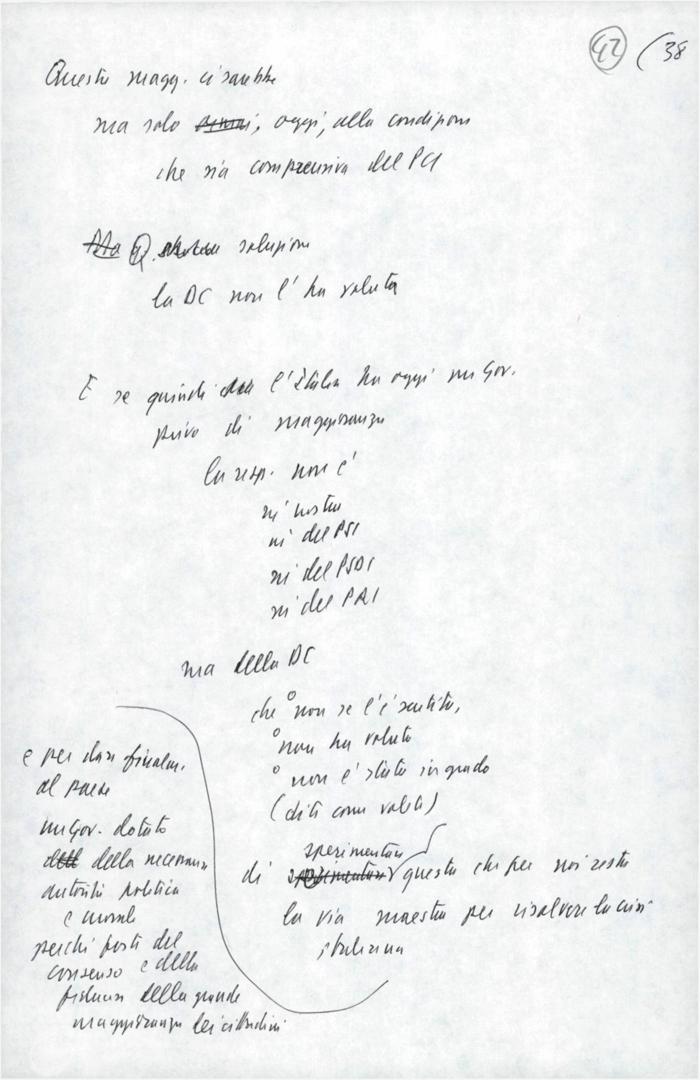 42 (38
Questa magg. ci sarebbe
ma solo, oggi, alla condizione
che sia comprensiva del PCI
Q. soluzione
la DC non l'ha voluta
E se quindi l'Italia ha oggi un Gov.
privo di maggioranza
la resp. non è
né nostra
né del PSI
né del PSDI
né del PRI
ma della DC
che ° non se l'è sentita,
° non ha voluto
° non è stata in grado
(dite come volete)
di sperimentare questa che per noi resta
la via maestra per risolvere la crisi
italiana
e per dare finalm.
al paese
un Gov. dotato
della necessaria
autorità politica
e morale
perché forte del
consenso e della
fiducia della grande
maggioranza dei cittadini